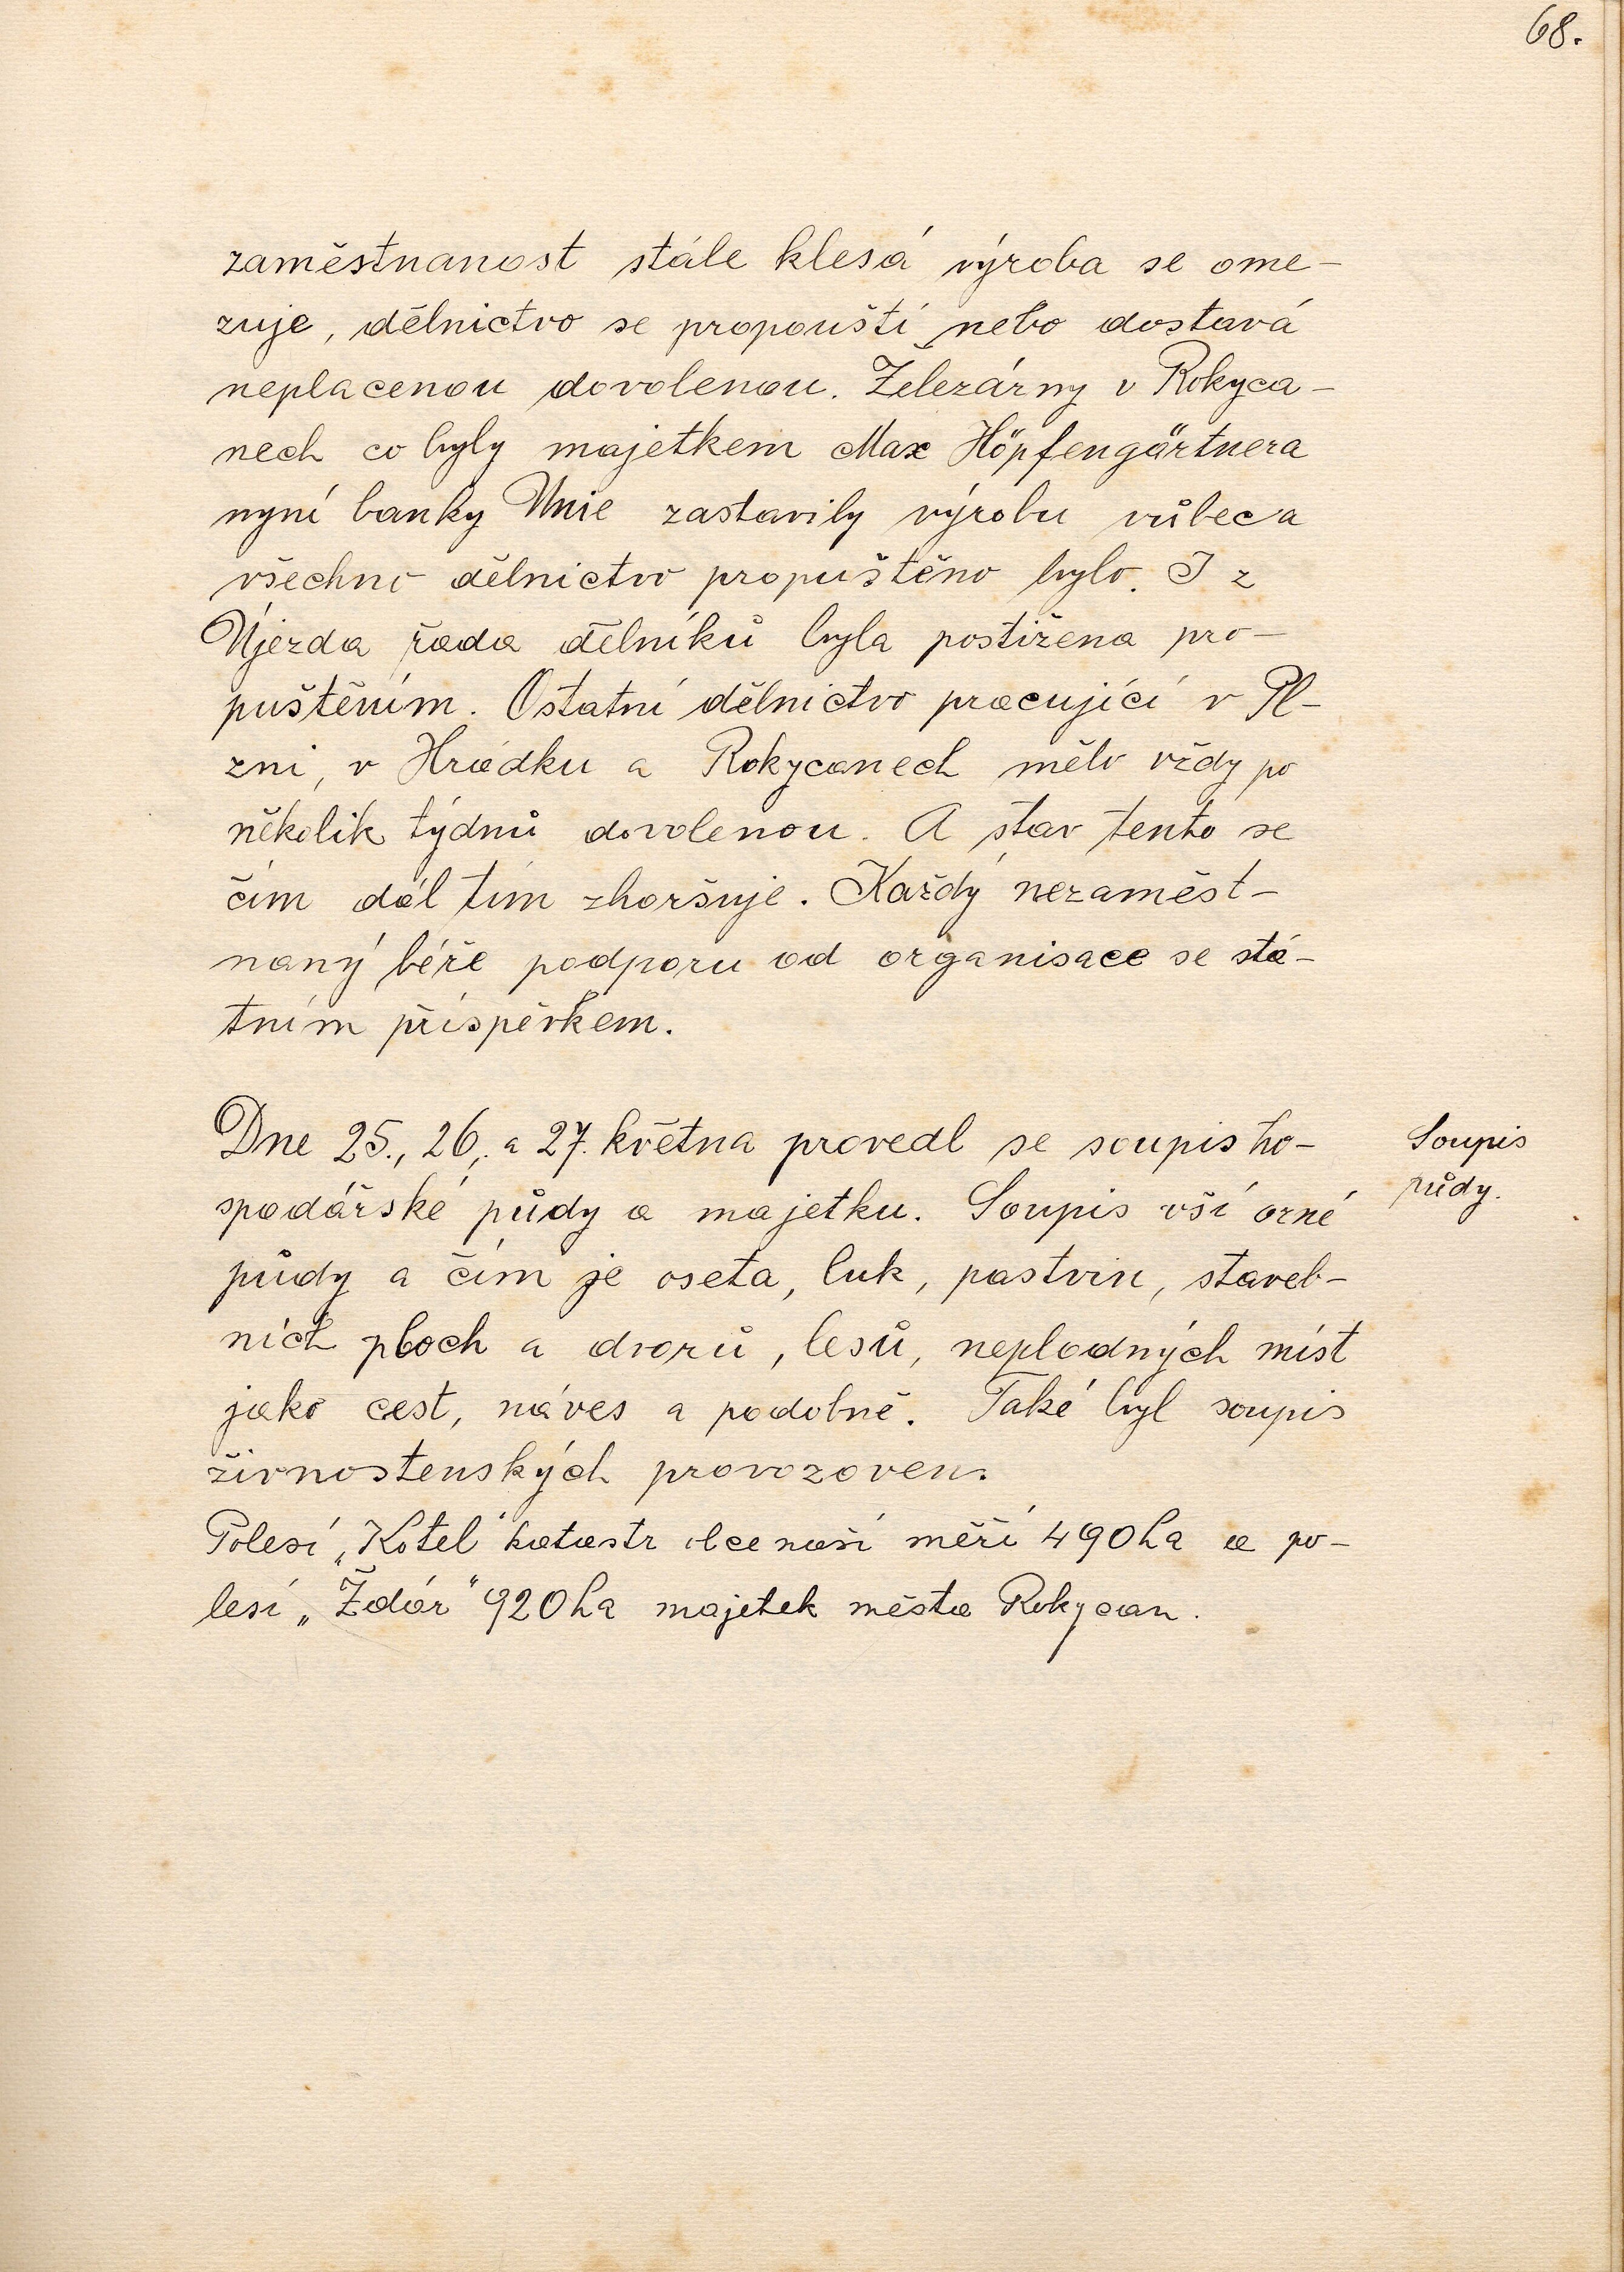 68.
zaměstnanost stále klesá výroba se ome-
zuje, dělnictvo se propouští nebo dostává
neplacenou dovolenou. Železárny v Rokyca-
nech co byly majetkem Max Höpfengärtnera
nyní banky Unie zastavily výrobu vůbec a
všechno dělnictvo propuštěno bylo. I z
Újezda řada dělníků byla postižena pro-
puštěním. Ostatní dělnictvo pracující v Pl-
zni, v Hrádku a Rokycanech mělo vždy po
několik týdnů dovolenou. A stav tento se
čím dál tím zhoršuje. Každý nezaměst-
naný béře podporu od organisace se stá-
tním příspěvkem.
Dne 25., 26., a 27. května provedl se soupis ho-
spodářské půdy a majetku. Soupis vší orné
půdy a čím je oseta, luk, pastvin, staveb-
ních ploch a dvorů, lesů, neplodných míst
jako cest, náves a podobně. Také byl soupis
živnostenských provozoven.
Polesí „Kotel" katastr obce naší měří 490 ha a po-
lesí „Ždár" 920 ha majetek města Rokycan.
Soupis
půdy.